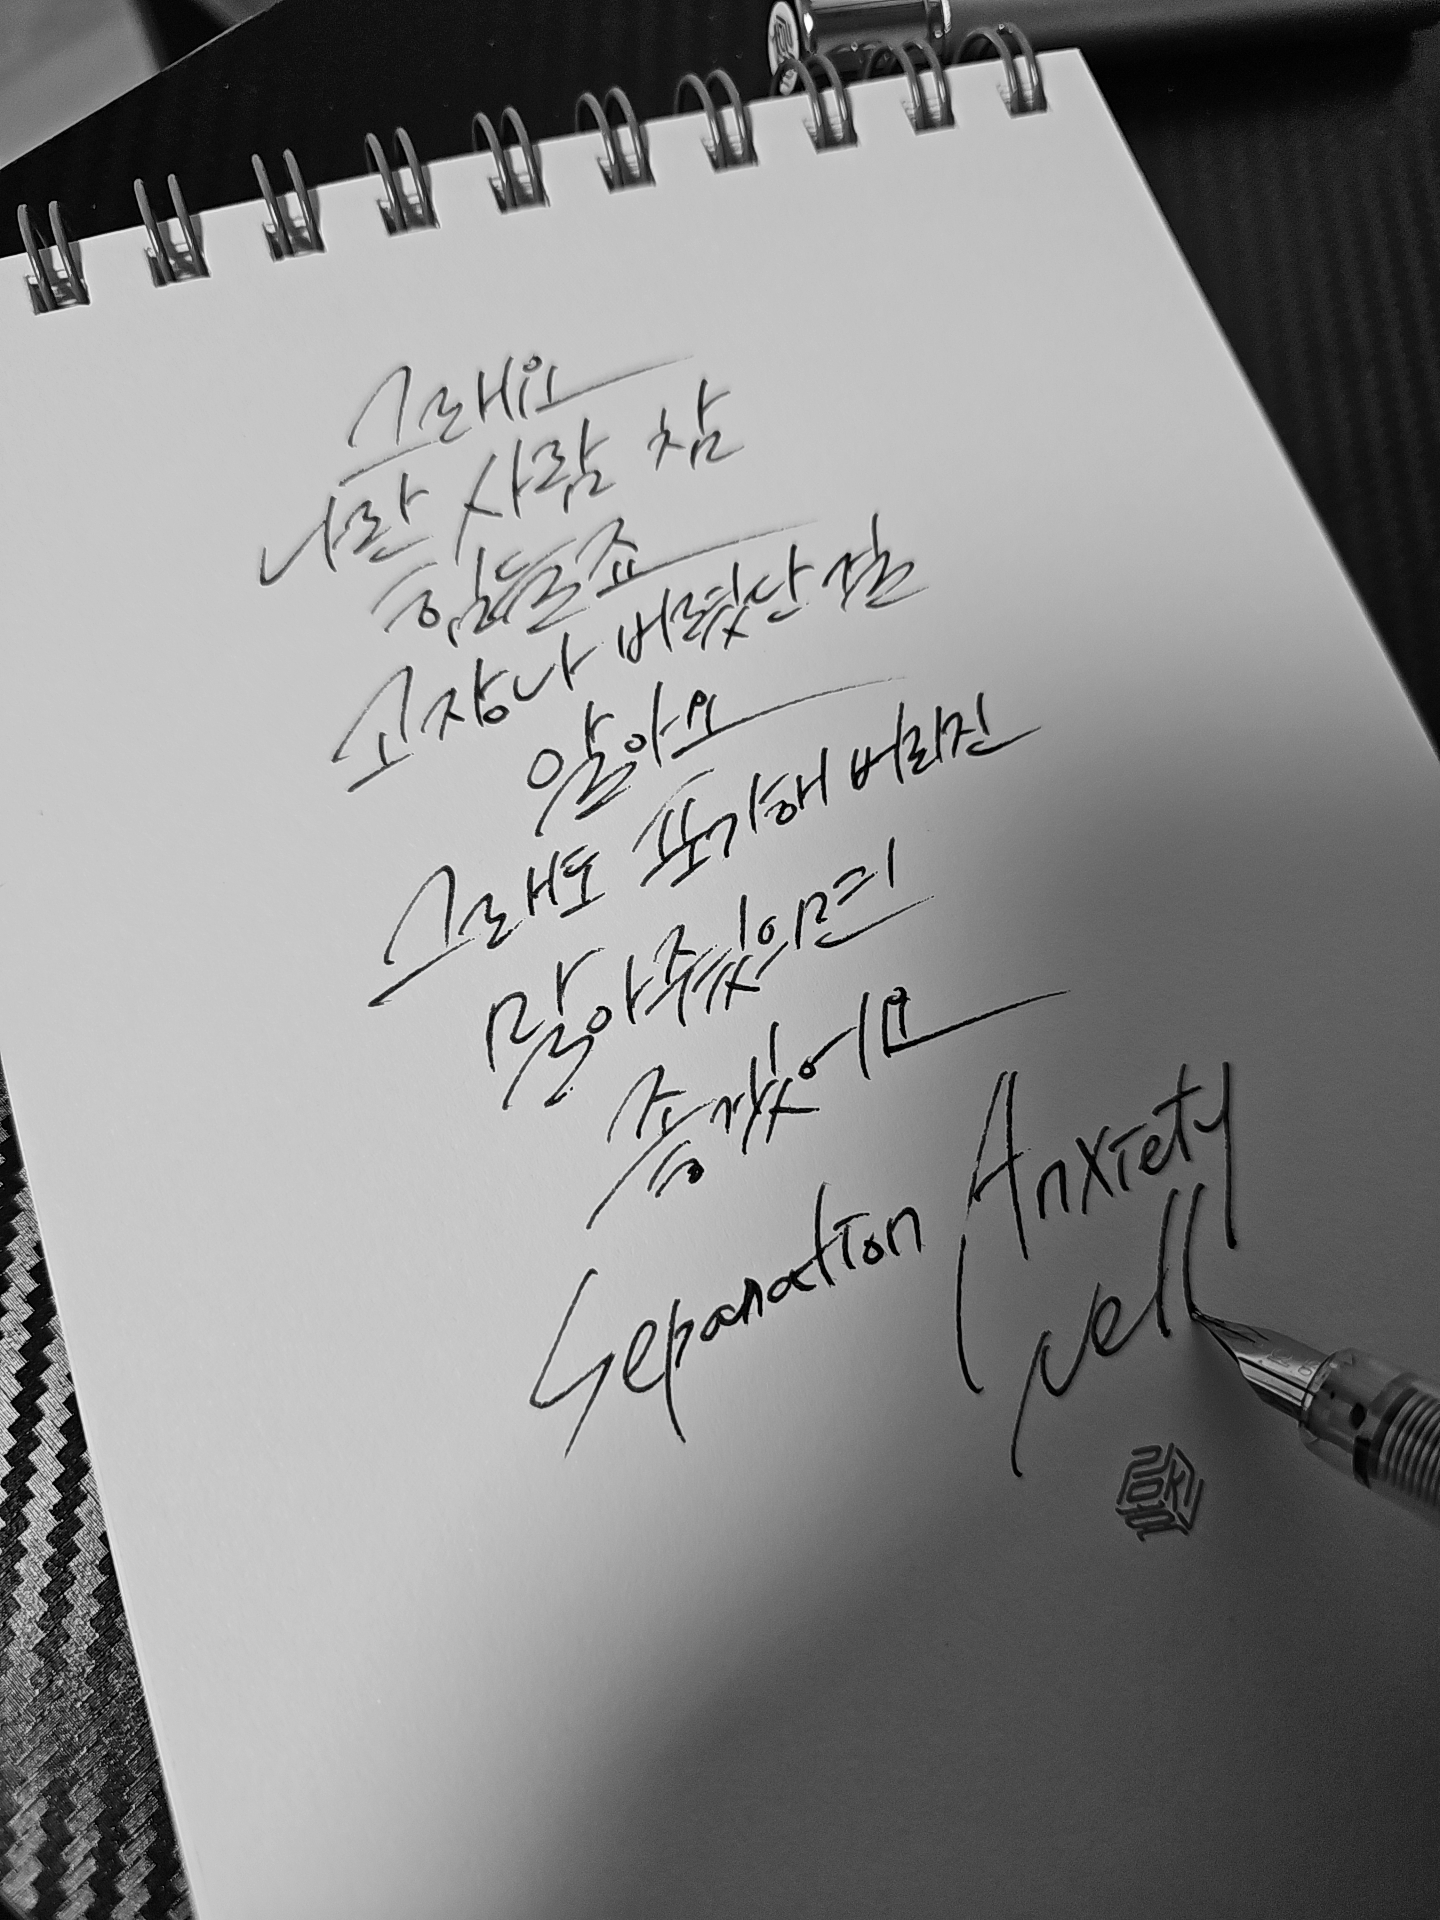 그래요
나란 사람 참
힘들죠
고장나 버렸단 걸
알아요
그래도 포기해 버리진
말아줬으면
좋겠어요
Separation Anxiety
Well